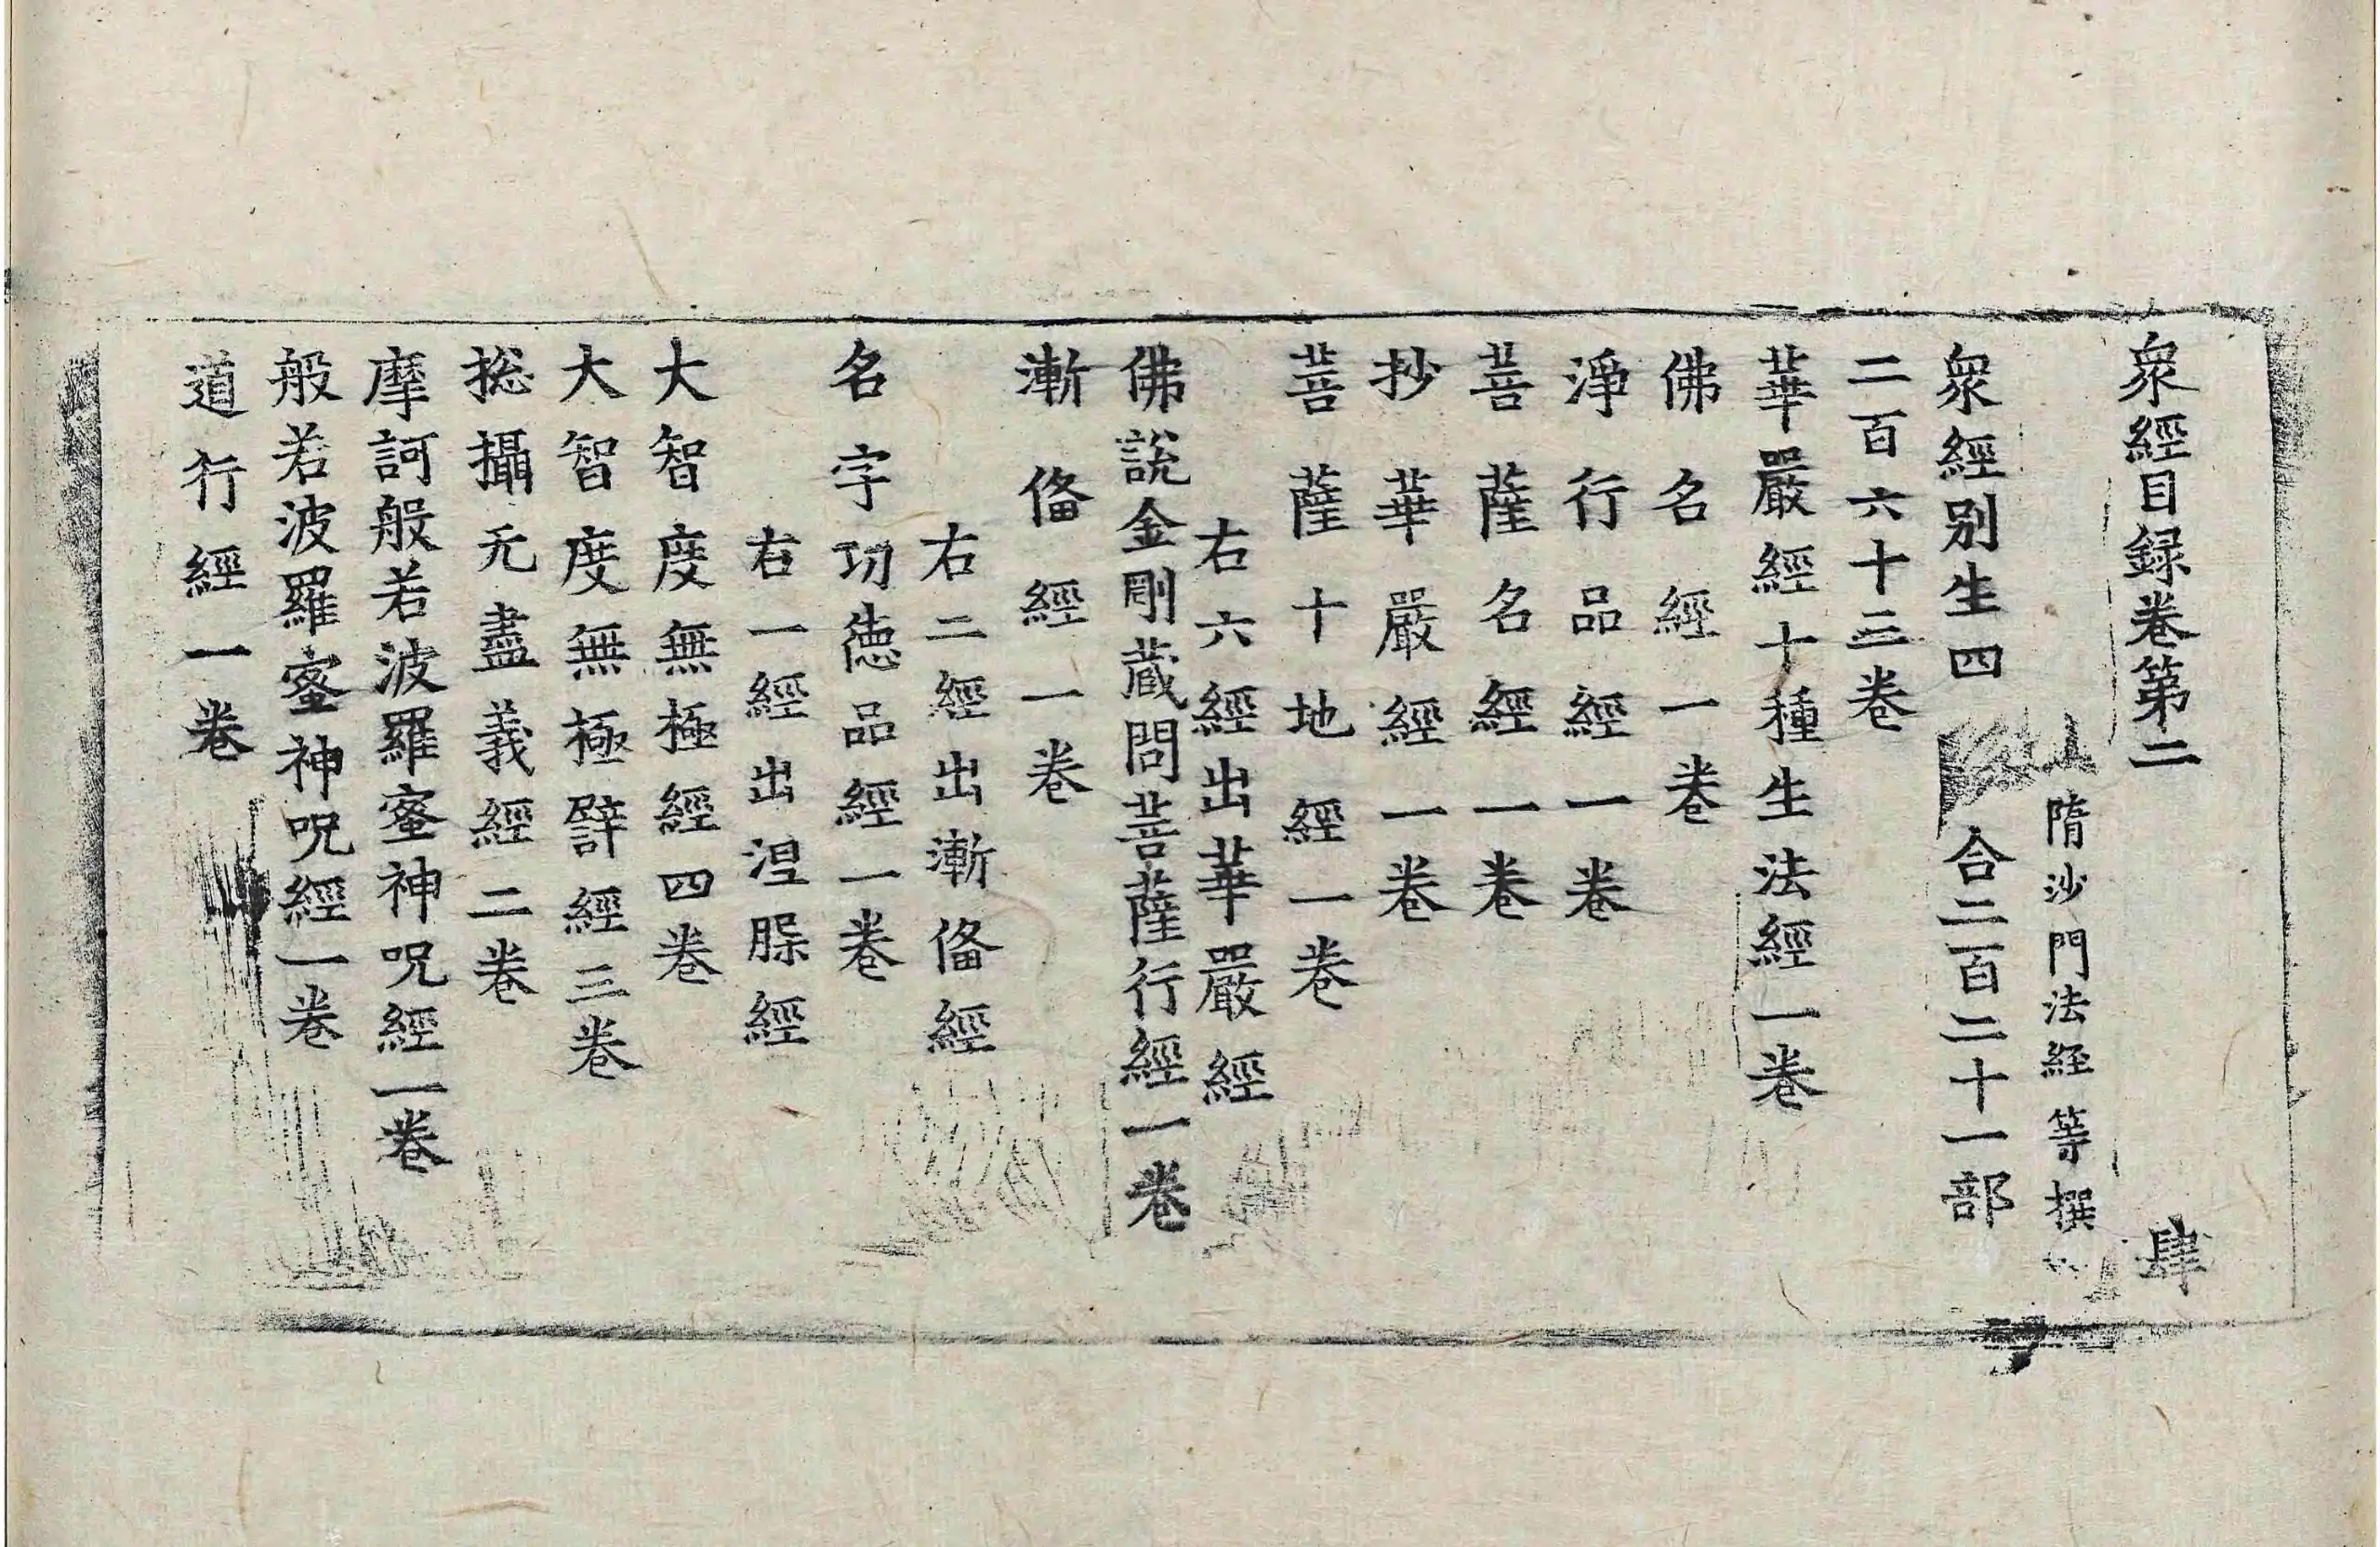 衆經目録卷第二 肆
隋沙門法經等撰
衆經別生四 合二百二十一部
二百六十三卷
華嚴經十種生法經一卷
佛名經一卷
淨行品經一卷
菩薩名經一卷
抄華嚴經一卷
菩薩十地經一卷
右六經出華嚴經
佛說金剛藏問菩薩行經一卷
漸俻經一卷
右二經出漸俻經
名字功德品經一卷
右一經出涅槃經
大智度無極經四卷
大智度無極譬經三卷
捴攝无盡義經二卷
摩訶般若波羅蜜神呪經一卷
般若波羅蜜神呪經一卷
道行經一卷